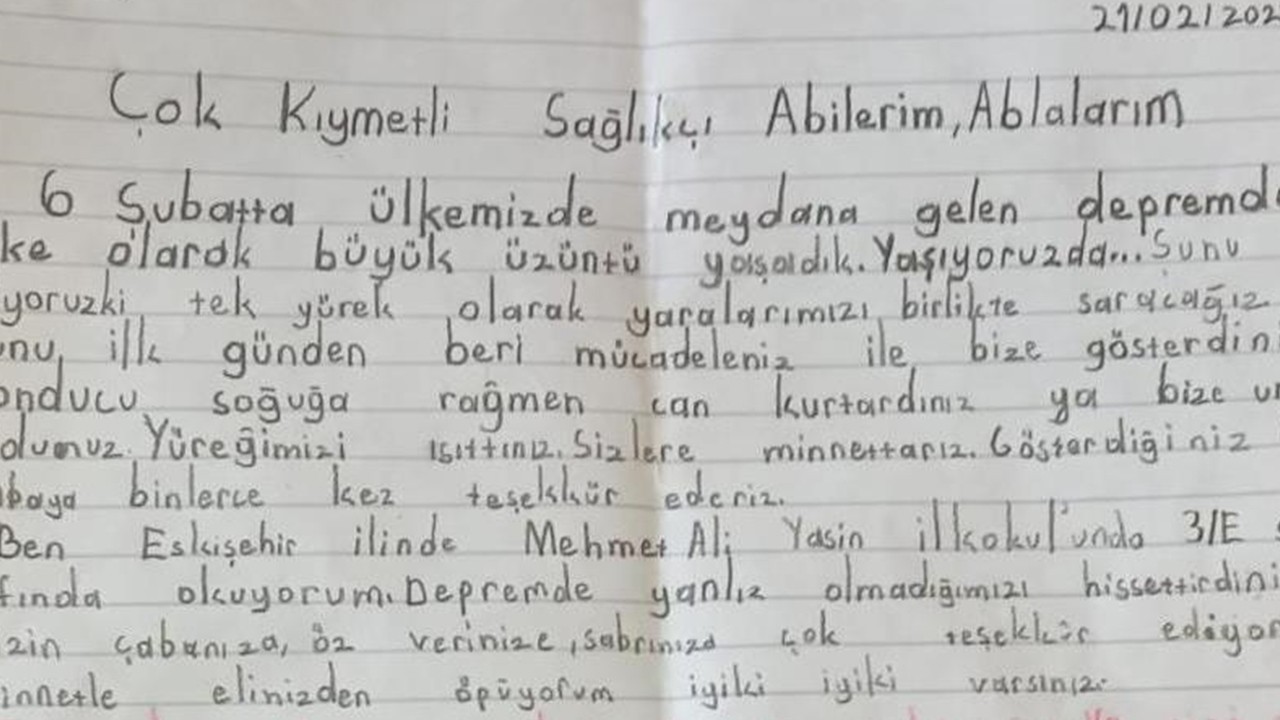 21/02/202
Çok Kıymetli Sağlıkçı Abilerim, Ablalarım
6 Şubatta ülkemizde meydana gelen depremd
ke olarak büyük üzüntü yaşadık. Yaşıyoruzda... Şunu
yoruzki tek yürek olarak yaralarımızı birlikte saracağız
nu ilk günden beri mücadeleniz ile bize gösterdin
onducu soğuğa rağmen can kurtardınız ya bize u
dunuz. Yüreğimizi ısıttınız. Sizlere minnettarız. Gösterdiğiniz
baya binlerce kez teşekkür ederiz.
Ben Eskişehir ilinde Mehmet Ali Yasin ilkokul'unda 3/E s
fında okuyorum. Depremde yanlız olmadığımızı hissettirdini
zin çabanıza, öz verinize, sabrınıza çok teşekkür ediyor
innetle elinizden öpüyorum iyiki iyiki varsınız.